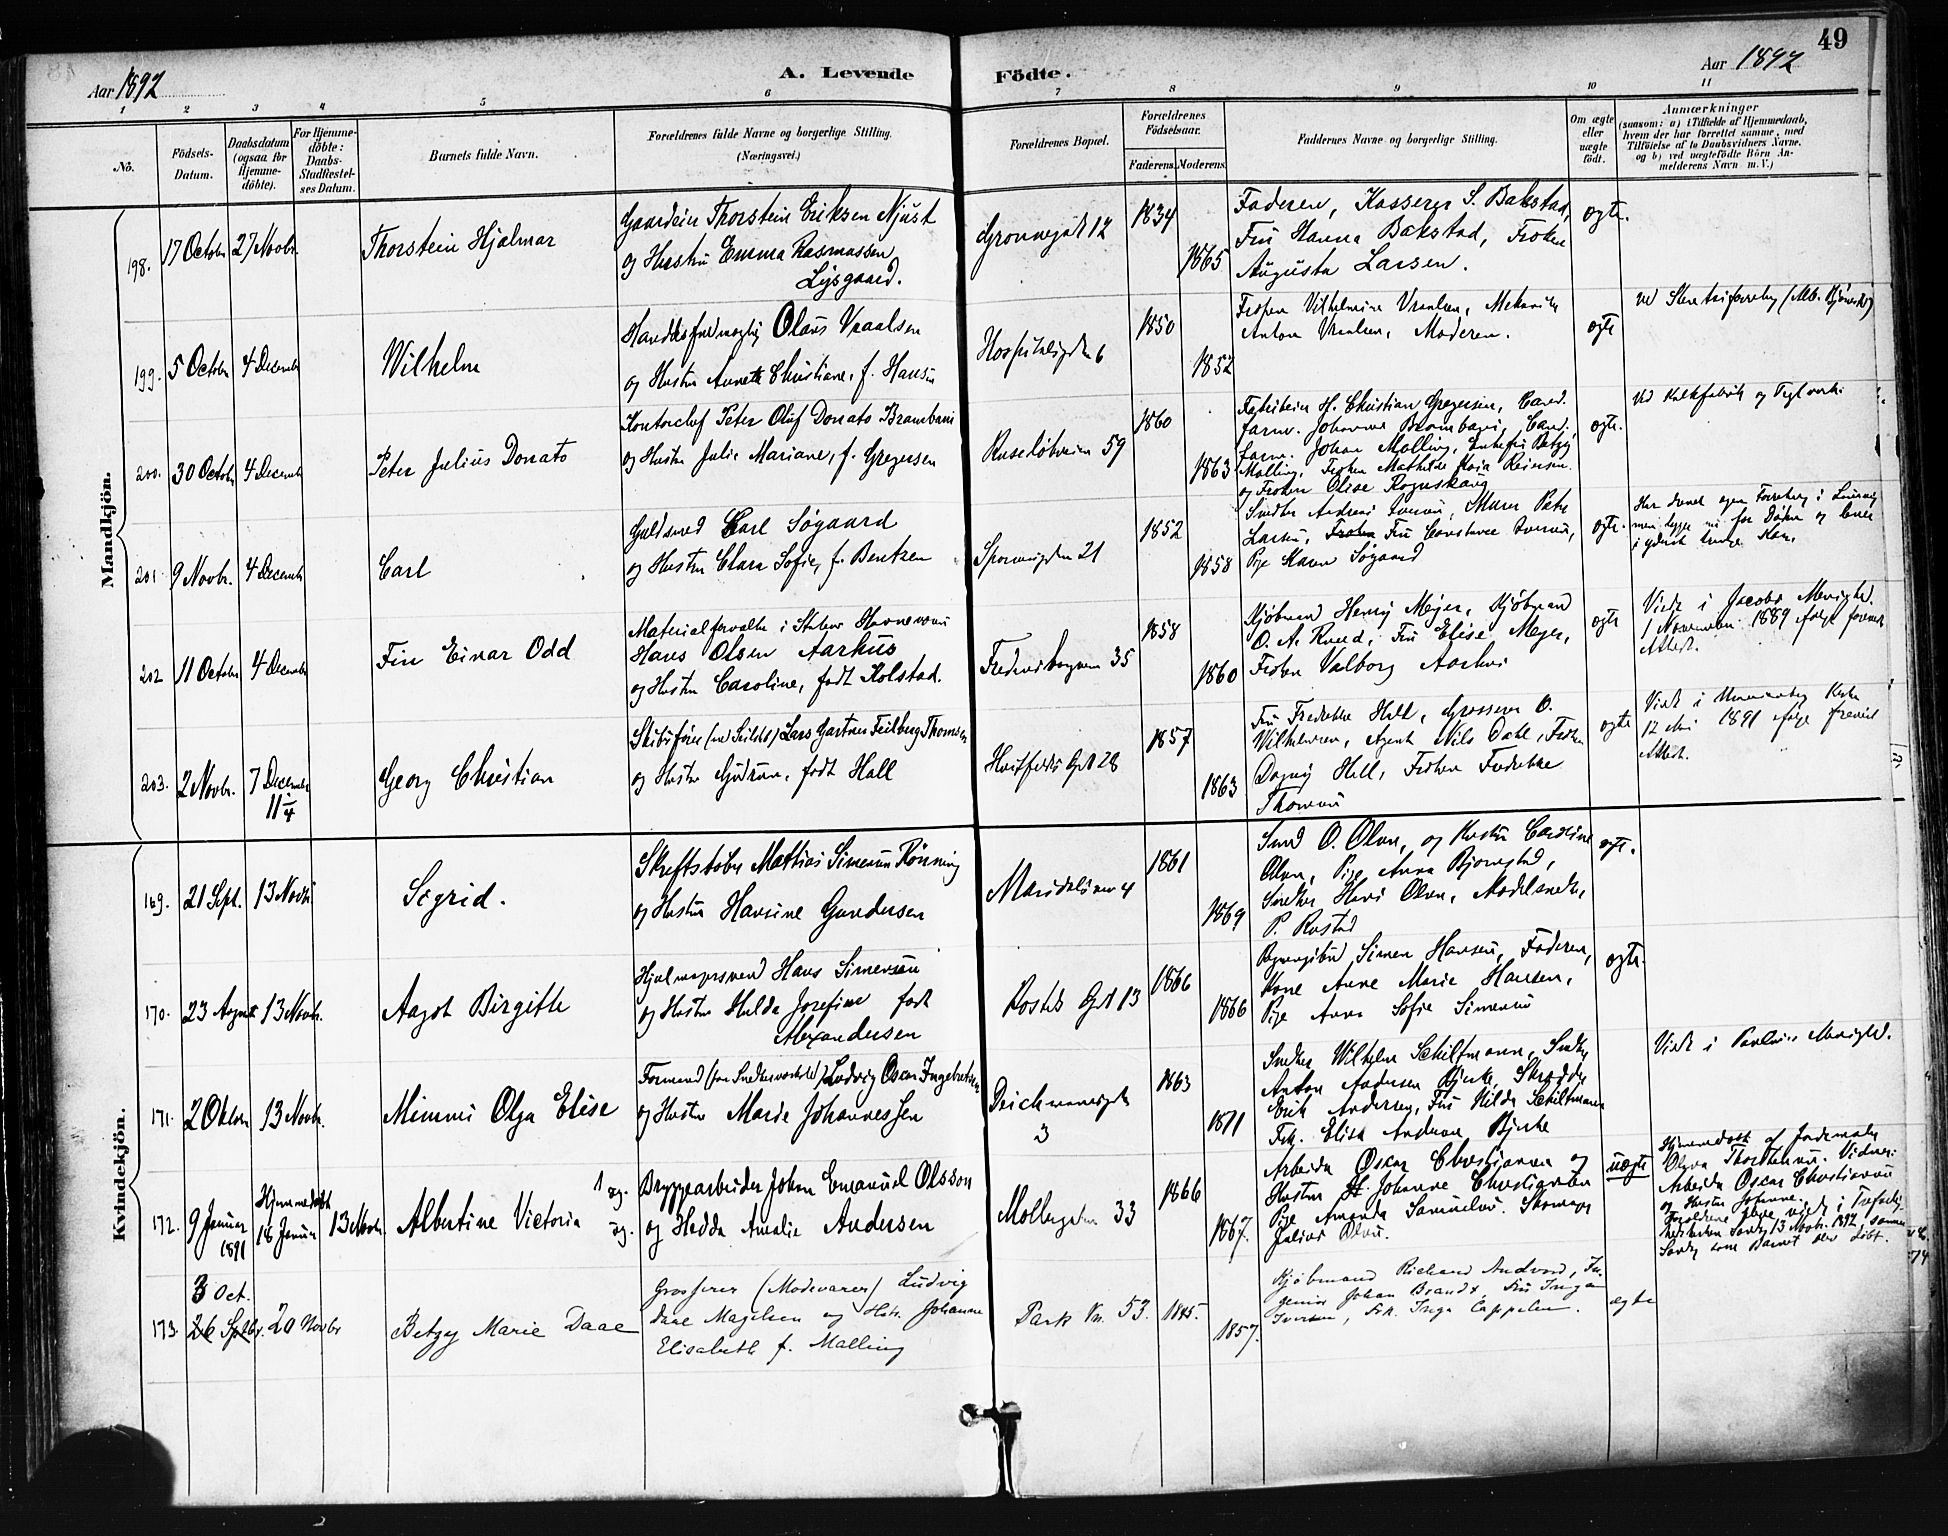 49
Aar 1892
A. Levende Födte.
Aar 1892
1 2 3 4 5 6 7 8 9 10 11
No.
Födsels-Datum.
Daabsdatum (ogsaa for Hjemme-döbte).
For Hjemme-döbte: Daabs-Stadfæstel-ses Datum.
Barnets fulde Navn.
Forældrenes fulde Navne og borgerlige Stilling.
(Næringsvei.)
Forældrenes Bopæl.
Forældrenes Födselsaar.
Faderens. Moderens.
Faddernes Navne og borgerlige Stilling.
Om ægte eller uægte födt.
Anmærkninger
(saasom: a) i Tilfælde af Hjemmedaab,
hvem der har forrettet samme, med
Tilföielse af to Daabsvidners Navne,
og b) ved uægtefödte Börn An-
melderens Navn m. V.)
Mandkjön.
198. 17 Octobr 27 Novbr. Thorstein Hjalmar
Gaardeier Thorstein Eriksen Njust
og Hustru Emma Rasmussen
Lysgaard.
Grønnegdt 12 1834 1865
Faderen, Kasserer S. Bakstad,
Frú Hanna Bakstad, Frøken
Augusta Larsen.
ægte.
199. 5 Octobr 4 Decembr Wilhelm
Olaus Vraalsen
og Hustru Annette Christiane, f. Hansen
Hospitalsgden 6 1850 1852
Frøken Vilhelmine Vraalsen, Mekaniker
Anton Vraalsen, Moderen.
ægte
200. 30 Octobr 4 Decembr Peter Julius Donato
Kontorchef Peter Oluf Donato Brambani
og Hustru Julie Mariane, f. Gregersen
Ruseløkveien 59 1860 1863
Fabrikeier H. Christian Gregersen, Cand.
farm. Johannes Brambani, Cand.
farm. Johan Malling, Enkefru Betzy
Malling, Frøken Mathilde Maria Reiersen
og Frøken Elise Rognskaug
ægte.
Ved Kalkfabrik og Teglverk.
201 9 Novbr. 4 Decembr Carl
Guldsmed Carl Søgaard
og Hustru Clara Sofie, f. Bentzen
Sporveisgden 21 1852 1858
Snedker Andreas Iversen, Murer Peter
Larsen, Frøken Frú Constance Iversen,
Pige Maren Søgaard
ægte.
202 11 Octobr 4 Decembr Fin Einar Odd
Materialforvalter i Statens Havnevæsen
Hans Olsen Aarhus
og Hustru Caroline, født Kolstad.
Fredensborgveien 35 1858 1860
Kjøbmand Henry Meyer, Kjøbmand
O. A. Ruud, Frú Elise Meyer,
Frøken Valborg Aarhus
ægte
Viede i Jacobs Menighed.
1 November 1889 ifølge forevist
Attest.
203. 2 Novbr. 7 Decembr 11/4 Georg Christian
Skibsfører Lars Gartner Feilberg Thomsen
og Hustru Gudrun, født Holl
Huitfeldts Gdt 28 1857 1863
Frú Fredrikke Holl, Grosserer O.
Wilhelmsen, Agent Nils Dahl, Frøken
Dagny Holl, Frøken Fredrikke
Thomsen
ægte
12 1891 ifølge forevist
Attest.
Kvindekjön.
169. 21 Sept. 13 Novbr Sigrid.
Skriftstøber Mathias Simensen Rønning
og Hustru Hansine Gundersen
Maridalsveien 4 1861 1869
Smed O. Olsen, og Hustru Caroline
Olsen, Pige Anna Bjørnstad,
Snedker Hans Olsen,
P. Rustad
ægt.
170. 23 August 13 Novbr. Aagot Birgitte
Hjulmagersvend Hans Simensen
og Hustru Hulda Josefine født
Alexandersen
Rosteds Gdt 13 1866 1866
Simen Hansen, Faderen,
Kone Anne Marie Hansen,
Pige Anna Sofie Simensen
ægte.
171. 2 Oktbr 13 Novbr. Mimmi Olga Elise
Formand (paa Snedkerværksted) Ludvig Oscar Ingebretsen
og Hustru Marie Johannessen
Deichmannsgde
3 1863 1871
Snedker Wilhelm Schiltmann, Snedker
Anton Andersen Bjerke, Skrædder
Erik Andersen, Frú Hilda Schiltmann
Frk. Elisa Andersen Bjerke
Viede i Paulus Menighed.
172. 9 Januar 1891 Hjemmedøbt 18 Januar 13 Novbr. Albertine Victoria
1 ug. Bryggearbeider Johan Emanuel Olsson
ug. og Hedda Amalie Andersen
Møllergaden 33 1866 1867.
Arbeider Oscar Christiansen og
Hustru Johanne Christiansen
Pige Amanda Samuelsen. Skomager
Julius Olsen.
uægte
Hjemmedøbt af Jordemoder
Olava Thorstensen. Vidner:
Arbeider Oscar Christiansen
og Hustru Johanne.
Forældrene bleve viede i Trefoldig-
hedskirken Søndag 13 Novbr. 1892, samme
Søndag som Barnet blev døbt.
173. 3 Oct. 26 Septbr. 20 Novbr Betzy Marie Daae
Grosserer (Modevarer) Ludvig
Daae Magelsen og Hstr. Johanne
Elisabeth f. Malling
Park Vn. 53. 1845. 1857.
Kjøbmand Richard Andvord, In-
geniør Johan Brandt, Frú Inga
Iversen, Frk. Inga Cappelen.
ægte